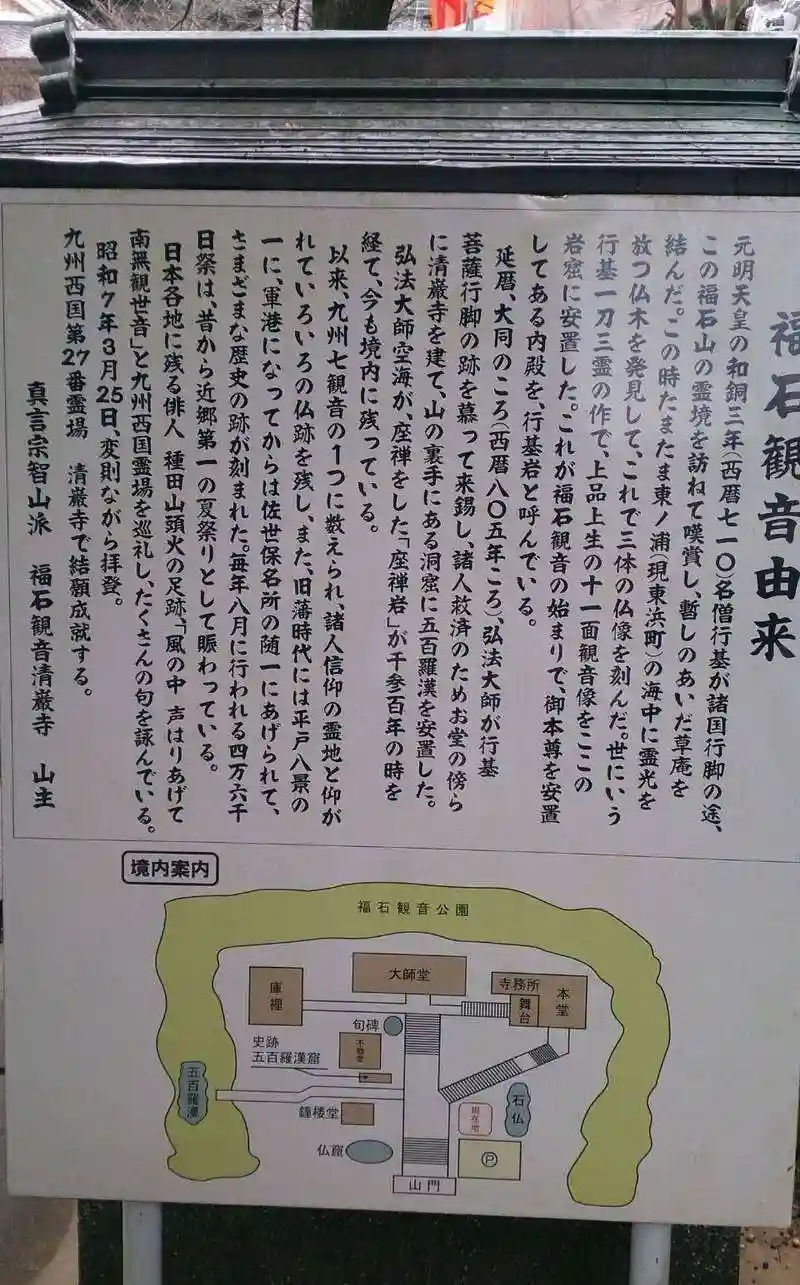 福石観音由来
元明天皇の和銅三年(西暦七一〇)名僧行基が諸国行脚の途、
この福石山の霊境を訪ねて嘆賞し、暫しのあいだ草庵を
結んだ。この時たまたま東ノ浦(現東浜町)の海中に霊光を
放つ仏木を発見して、これで三体の仏像を刻んだ。世にいう
行基一刀三霊の作で、上品上生の十一面観音像をここの
岩窟に安置した。これが福石観音の始まりで、御本尊を安置
してある内殿を、行基岩と呼んでいる。
延暦、大同のころ(西暦八〇五年ころ)、弘法大師が行基
菩薩行脚の跡を慕って来錫し、諸人救済のためお堂の傍ら
に清巌寺を建て、山の裏手にある洞窟に五百羅漢を安置した。
弘法大師空海が、座禅をした「座禅岩」が千参百年の時を
経て、今も境内に残っている。
以来、九州七観音の1つに数えられ、諸人信仰の霊地と仰が
れていろいろの仏跡を残し、また、旧藩時代には平戸八景の
一に、軍港になってからは佐世保名所の随一にあげられて、
さまざまな歴史の跡が刻まれた。毎年八月に行われる四万六千
日祭は、昔から近郷第一の夏祭りとして賑わっている。
日本各地に残る俳人 種田山頭火の足跡、「風の中 声はりあげて
南無観世音」と九州西国霊場を巡礼し、たくさんの句を詠んでいる。
昭和7年3月25日、変則ながら拝登。
九州西国第27番霊場 清巌寺で結願成就する。
真言宗智山派 福石観音清巌寺 山主
境内案内
福石観音公園
大師堂
庫裡
寺務所
本堂
舞台
句碑
不動堂
史跡
五百羅漢窟
五百羅漢
鐘楼堂
石仏
現在地
仏窟
P
山門